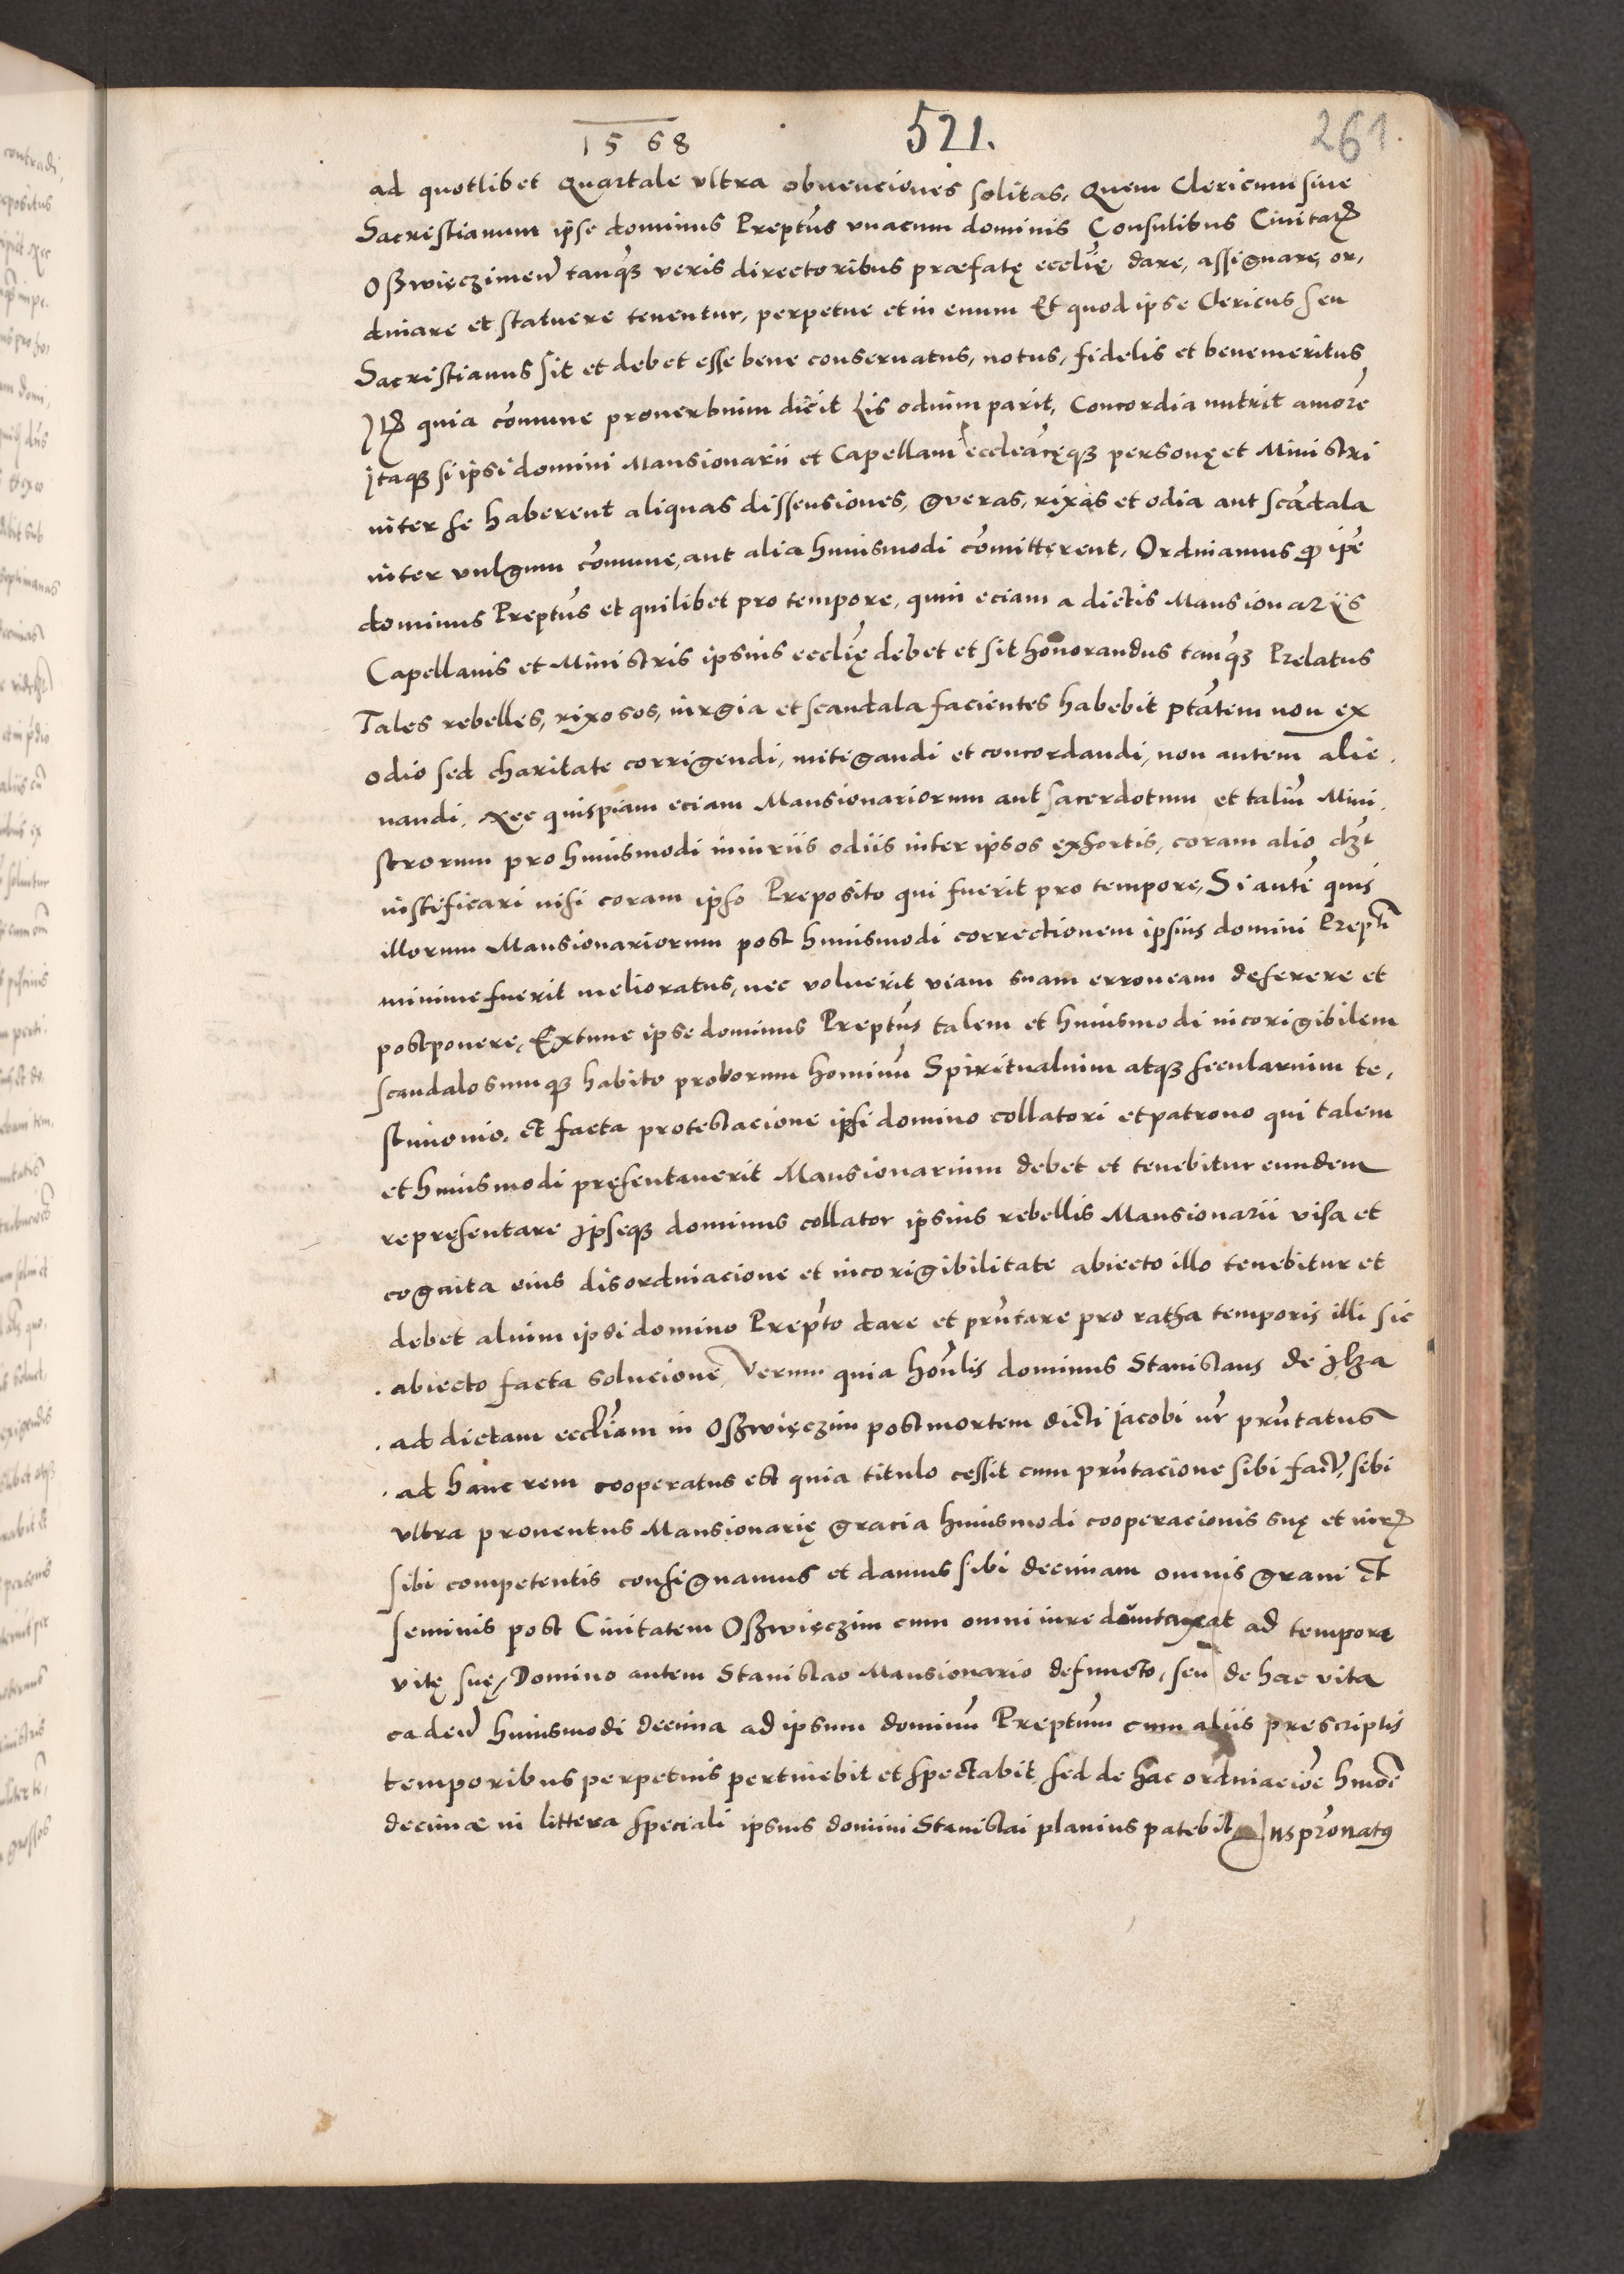 1568 521. 261.
ad quotlibet Quartale vltra obuenciones solitas, Quem Clericum siue
Sacristianum ipse dominus Prept̃us vnacum dominis Consulibus Ciuitatꝭ
Oszwięczimeñ tanq̃ꝫ veris directoribus præfatę eccl̃ię dare, assignare, or,
dinare et statuere tenentur, perpetue et in euum Et quod ipse Clericus seu
Sacristianus sit et debet esse bene conseruatus, notus, fidelis et benemeritus
quia cõmune prouerbium dicit Lis odium parit, Concordia nutrit amorẽ
Itaqꝫ si ipsi domini Mansionarii et Capellani eccleãcęqꝫ personę et Ministri
inter se haberent aliquas dissensiones, gueras, rixas et odia aut scãdala
inter vulgum cõmune, aut alia huiusmodi cõmitterent, Ordinamus ꝙ ip̃e
dominus Prept̃us et quilibet pro tempore, quin eciam a dictis Mansionarijs
Capellanis et Ministris ipsius eccl̃ię debet et sit honorandus tanq̃ꝫ Prelatus
Tales rebelles, rixosos, iurgia et scandala facientes habebit ptãtem non ex
odio sed charitate corrigendi, mitigandi et concordandi, non autem alie,
nandi, Nec quispiam eciam Mansionariorum aut sacerdotum et taliũ Mini,
strorum pro huiusmodi iniuriis odiis inter ipsos exhortis, coram alio dꝫt
iustificari nisi coram ipso Preposito qui fuerit pro tempore, Si autẽ quis
illorum Mansionariorum post huiusmodi correctionem ipsius domini Prepti
minime fuerit melioratus, nec voluerit viam suam erroneam deserere et
postponere, Extunc ipse dominus Prept̃us talem et huiusmodi incorigibilem
scandalosumqꝫ habito proborum hominũ Spiritualium atqꝫ secularium te,
stimonio, et facta protestacione ipsi domino collatori et patrono qui talem
et huiusmodi pręsentauerit Mansionarium debet et tenebitur eundem
repręsentare Ipseqꝫ dominus collator ipsius rebellis Mansionarii visa et
cognita eius disordinacione et incorigibilitate abiecto illo tenebitur et
debet alium ipsi domino Prepto dare et prñtare pro ratha temporis illi sic
abiecto facta solucione, Verum quia honlis dominus Stanislaus de Ilza
ad dictam eccl̃iam in Oszwięczim post mortem dicti Jacobi nr̃ prñtatus
ad hanc rem cooperatus est quia titulo cessit cum prñtacione sibi fact, sibi
vltra prouentus Mansionarię gracia huiusmodi cooperacionis suę et iurꝭ
sibi competentis consignamus et damus sibi decimam omnis grani et
seminis post Ciuitatem Oszwięczim cum omni iure duntaxat ad tempora
vitę suę, Domino autem Stanislao Mansionario defuncto, seu de hac vita
cadeñ huiusmodi decima ad ipsum dominũ Preptum cum aliis prescriptis
temporibus perpetuis pertinebit et spectabit, sed de hac ordinaciõe hmõi
decimæ in littera speciali ipsius domini Stanislai planius patebit Ius pr̃onatꝰ